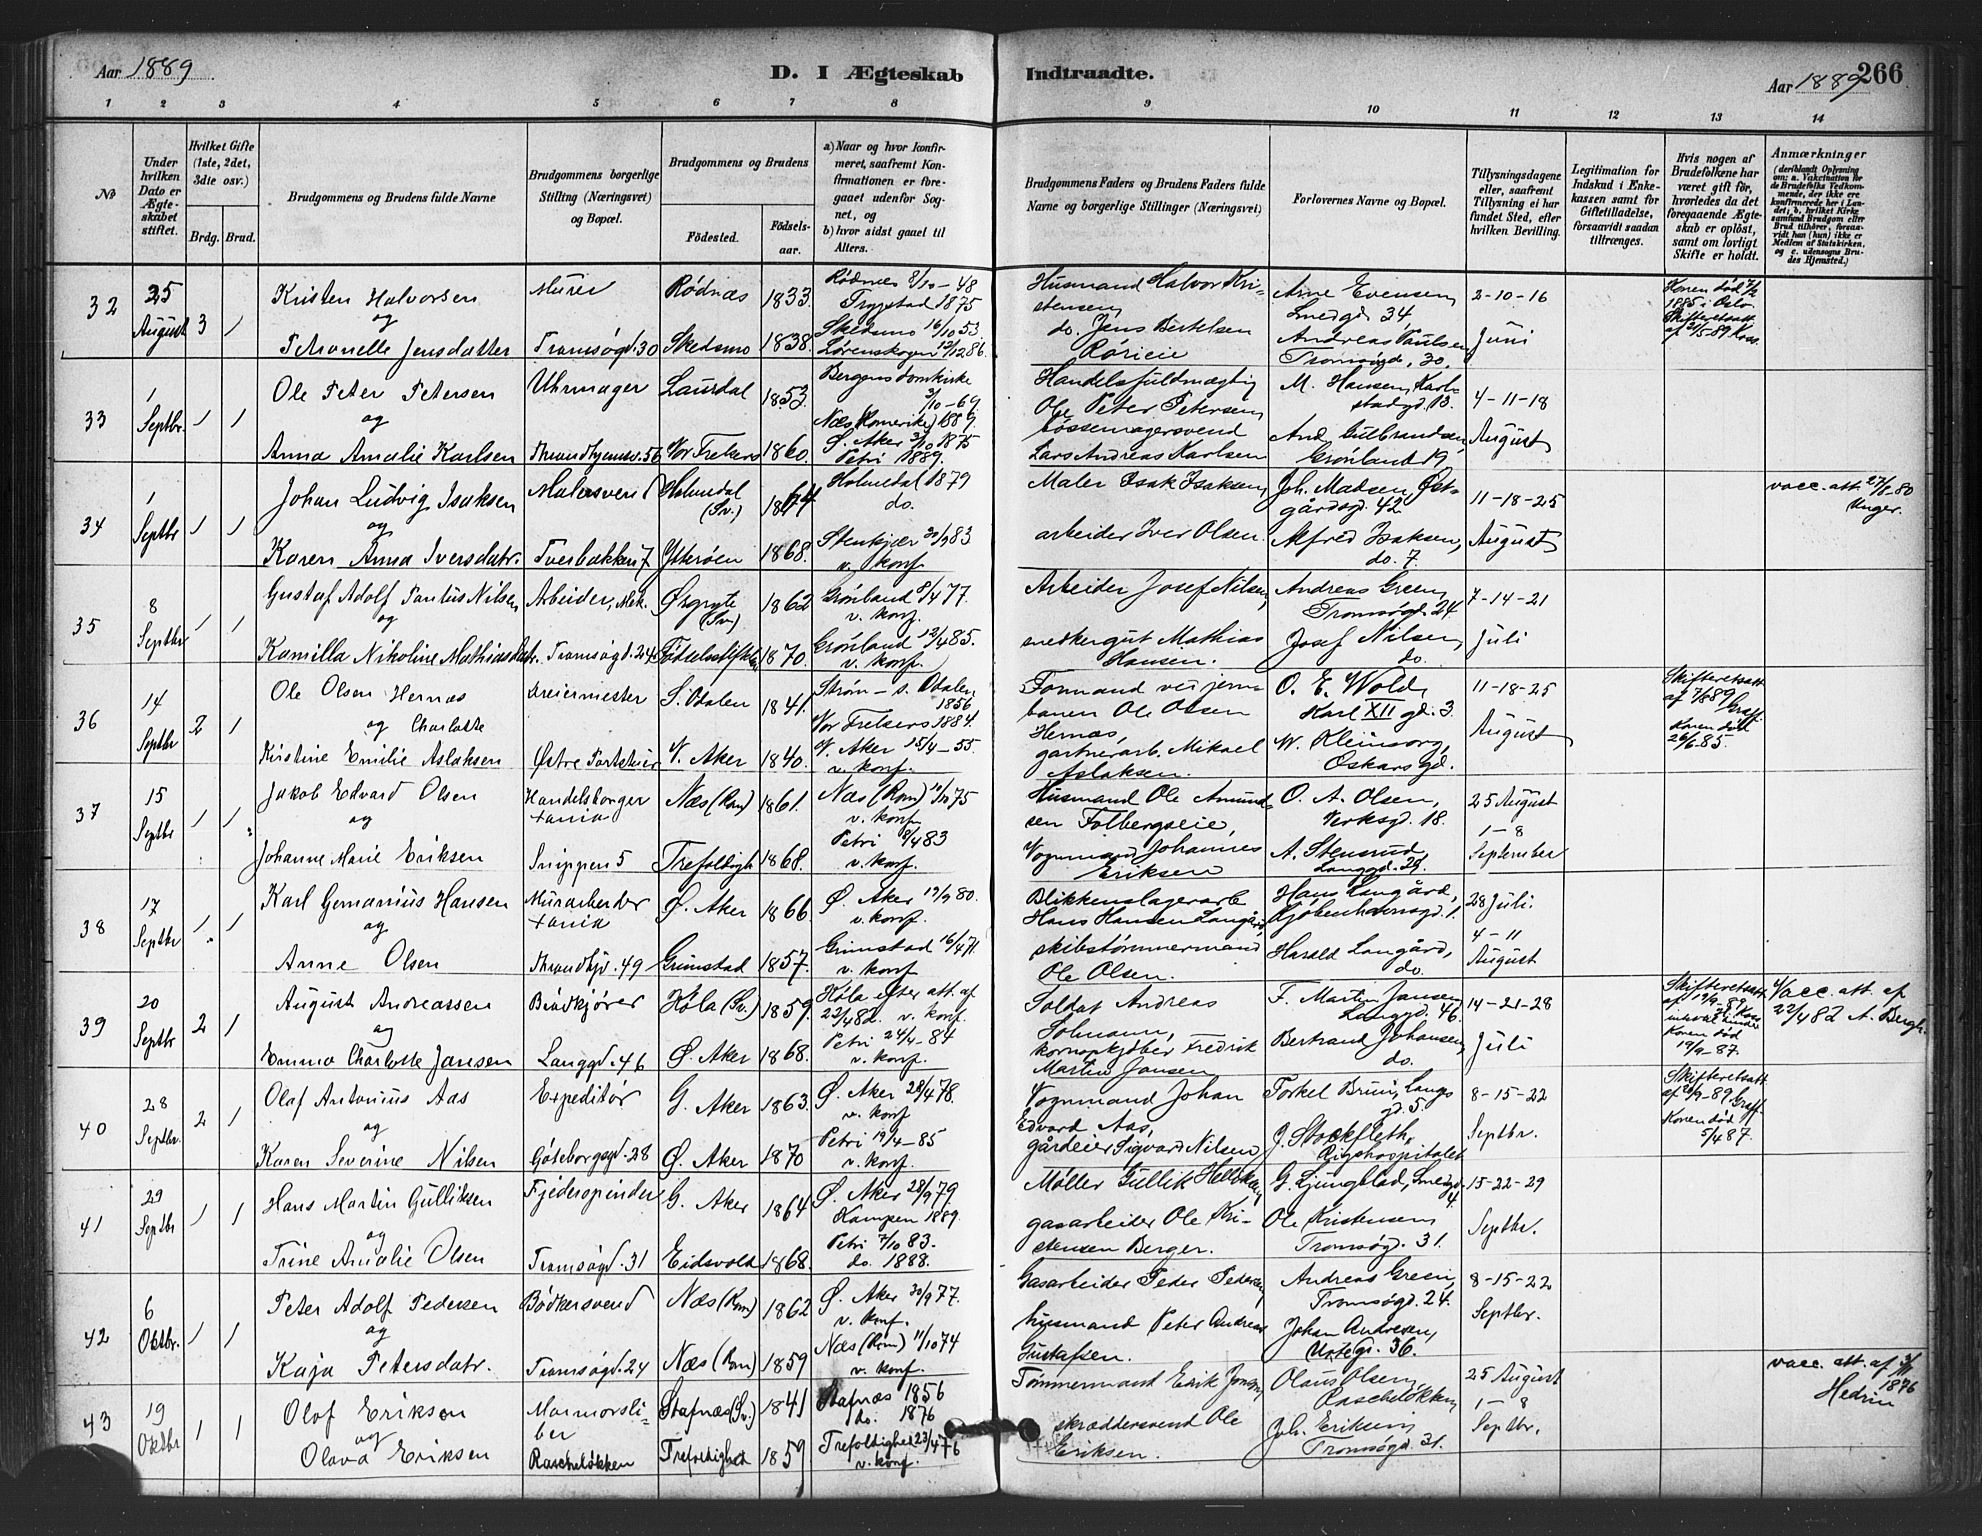 Aar 1889
D. I Ægteskab Indtraadte.
Aar 1889 266
1 2 3 4 5 6 7 8 9 10 11 12 13 14
№
Under hvilken Dato er Ægteskabet stiftet.
Hvilket Gifte (1ste, 2det, 3die osv.)
Brdg. Brud.
Brudgommens og Brudens fulde Navne
Brudgommens borgerlige Stilling (Næringsvei) og Bopæl.
Brudgommens og Brudens
Fødested. Fødselsaar.
a) Naar og hvor konfirmeret, saafremt Konfirmationen er foregaaet udenfor Sognet, og
b) hvor sidst gaaet til Alters.
Brudgommens Faders og Brudens Faders fulde Navne og borgerlige Stillinger (Næringsvei)
Forlovernes Navne og Bopæl.
Tillysningsdagene eller, saafremt Tillysning ei har fundet Sted, efter hvilken Bevilling.
Legitimation for Indskud i Enkekassen samt for Giftetilladelse, forsaavidt saadan tiltrænges.
Hvis nogen af Brudefolkene har været gift før, hvorledes da det foregaaende Ægteskab er opløst, samt om lovligt Skifte er holdt.
Anmærkninger (deriblandt Oplysning om: a. Vakcination for de Brudefolks Vedkommende, der ikke ere konfirmerede her i Landet; b. hvilket Kirkesamfund Brudgom eller Brud tilhører, forsaavidt han (hun) ikke er Medlem af Statskirken, og c. udensogns Brudes Hjemsted.)
32 25 August 3 1
Kristen Halvorsen Murer Rødnæs 1833. Rødnæs 8/10-48 Trygstad 1875
og
Petronelle Jensdatter Tromsøgd. 30 Skedsmo 1838. Skedsmo 16/10 53 Lørenskogen 12/12 86.
Husmand Halvor Kristensen, Arne Evensen, Smedgd 34, 2-10-16
do. Jens Bertelsen Andreas Paulsen Tromsøgd. 30. Juni
Konen død 7/2 1885 i Oslo.
33 1 Septbr. 1 1
Ole Peter Petersen Uhrmager Laurdal 1853. Bergens domkirke 3/10-69. Næs (Romerike) 1889.
og
Anna Amalie Karlsen Throndhjemsv. 56 Vor Frelsers 1860. Ø. Aker 3/10 1875 Petri 1889.
Handelsfuldmægtig Ole Peter Petersen, M. Hansen, Karlstadgd. 13. 4-11-18
bøssemagersvend Lars Andreas Karlsen And. Gulbrandsen, Grønland 19, August
34 1 Septbr 1 1
Johan Ludvig Isaksen Malersvend Holmedal (Sv.) 1864 Holmedal 1879 do.
og
Karen Anna Iversdatr. Tvesbakken 7 Ytterøen 1868. Stenkjær 30/9 83 v. konf.
Maler Isak Isaksen, Joh. Madsen, Østgårdsgd. 42 11-18-25
arbeider Iver Olsen. Alfred Isaksen, do. 7. August
vacc. att. 27/8-80 Unger.
35 8 Septbr 1 1
Gustaf Adolf Pontus Nilsen Arbeider, Mek. Ørgryte (Sv.) 1862 Grønland 8/4 77. v. konf.
og
Kamilla Nikoline Mathiasdatr. Tromsøgd. 24 Fødselsstiftelsen 1870. Grønland 12/4 85. v. konf.
Arbeider Josef Nilsen, Andreas Green, Tromsøgd. 24. 7-14-21
snedkergut Mathias Hansen. Josef Nilsen, do. Juli
36 14 Septbr 2 1
Ole Olsen Hernæs Dreiermester S. Odalen 1841. Strøm - s. Odalen 1856 Vor Frelsers 1884.
og Charlotte
Kristine Emilie Aslaksen Østre V. Aker 1840. V. Aker 15/4-55. v. konf.
Formand ved jernbanen Ole Olsen Hernæs, O. E. Wold, Karl XII gd. 3 11-18-25
gartnerarb. Mikael Aslaksen. W. Kleinsorg, Oskarsgd. August
Skifteretsatt. af 7/8 89 Graff. Konen død 26/6-85.
37 15 Septbr 1 1
Jakob Edvard Olsen Handelsborger Xania Næs (Rom) 1861. Næs (Rom) 11/10 75 v. konf.
og
Johanne Marie Eriksen Snippen 5 Trefoldigh 1868. Petri 8/4 83 v. konf.
Husmand Ole Amundsen Folbergseie, O. A. Olsen, Verksgd. 18. 25 August
Vognmand Johannes Eriksen A. Stensrud Langgd. 29. 1-8 September
38 17 Septbr 1 1
Karl Gemanius Hansen Murarbeider Xania Ø. Aker 1866 Ø. Aker 19/9 80. v. konf.
og
Anne Olsen Throndhjd. 49 Grimstad 1857. Grimstad 16/4 71. v. konf.
Blikkenslagerarb Hans Hansen Langård Hans Langård, Kjøbenhavnsgd. 1. 28 Juli.
skibstømmermand Ole Olsen. Harald Langård, do. 4-11 August
39 20 Septbr 2 1
August Andreassen Brødkjører Køla (Sv.) 1859. Køla efter att. af 22/4 82. v. konf.
og
Emma Charlotte Jansen Langgd. 46 Ø. Aker 1868. Petri 24/4-84 v. konf.
Soldat Andreas Solmann, F. Martin Jansen Langgd. 46. 14-21-28
kornopkjøber Fredrik Martin Jansen Bertrand Johansen, do. Juli
Skifteretsatt. af 19/9-89. Konen død 19/9-87.
Vacc. att. af 22/4 82 A. Bergh.
40 28 Septbr. 2 1
Olaf Antonius Aas Expeditør G. Aker 1863. Ø. Aker 28/4 78. v. konf
og
Karen Severine Nilsen Gøteborgsgd. 28 Ø. Aker 1870 Petri 19/4-85 v. konf.
Vognmand Johan Edvard Aas, Torkel Bruu, Langsgd. 5. 8-15-22
gårdeier Sigvart Nilsen J. Stockfleth, Rigshospitalet Septbr.
Skifteretsatt. af 20/9-89 Graff. Konen død 5/4 87.
41 29 Septbr 1 1
Hans Martin Gulliksen Fjederspinder G. Aker 1864 Ø. Aker 28/9 79 Kampen 1889.
og
Trine Amalie Olsen Tromsøgd. 31 Eidsvold 1868. Petri 7/10 83. do. 1888.
Møller Gullik G. Ljungblad, Smedgd. 4. 15-22-29
gasarbeider Ole Kristensen Berger. Ole Kristensen Tromsøgd. 31. Septbr.
42 6 Oktbr. 1 1
Peter Adolf Pedersen Bødkersvend Næs (Rom) 1862 Ø. Aker 30/9 77. v. konf.
og
Kaja Petersdatr. Tromsøgd. 24 Næs (Rom) 1859 Næs (Rom) 11/10 74 v. konf.
Gasarbeider Peder Pedersen, Andreas Green, Tromsøgd. 24. 8-15-22
husmand Peter Andreas Gustafsen. Johan Andresen, Urtegd. 36. Septbr.
43 19 Oktbr 1 1
Olof Eriksen Marmorsliber Stafnæs (Sv.) 1841 Stafnæs 1856 do. 1876
og
Olava Eriksen Rascheløkken Trefoldighed 1859 Trefoldighed 23/4 76 v. konf.
Tømmermand Erik Jonsen, Olaus Olsen, Rascheløkken 25 August
skræddersvend Ole Eriksen. Joh. Eriksen, Tromsøgd. 31. 1-8 Septbr.
vacc. att. af 3/11 1876 Hedrin